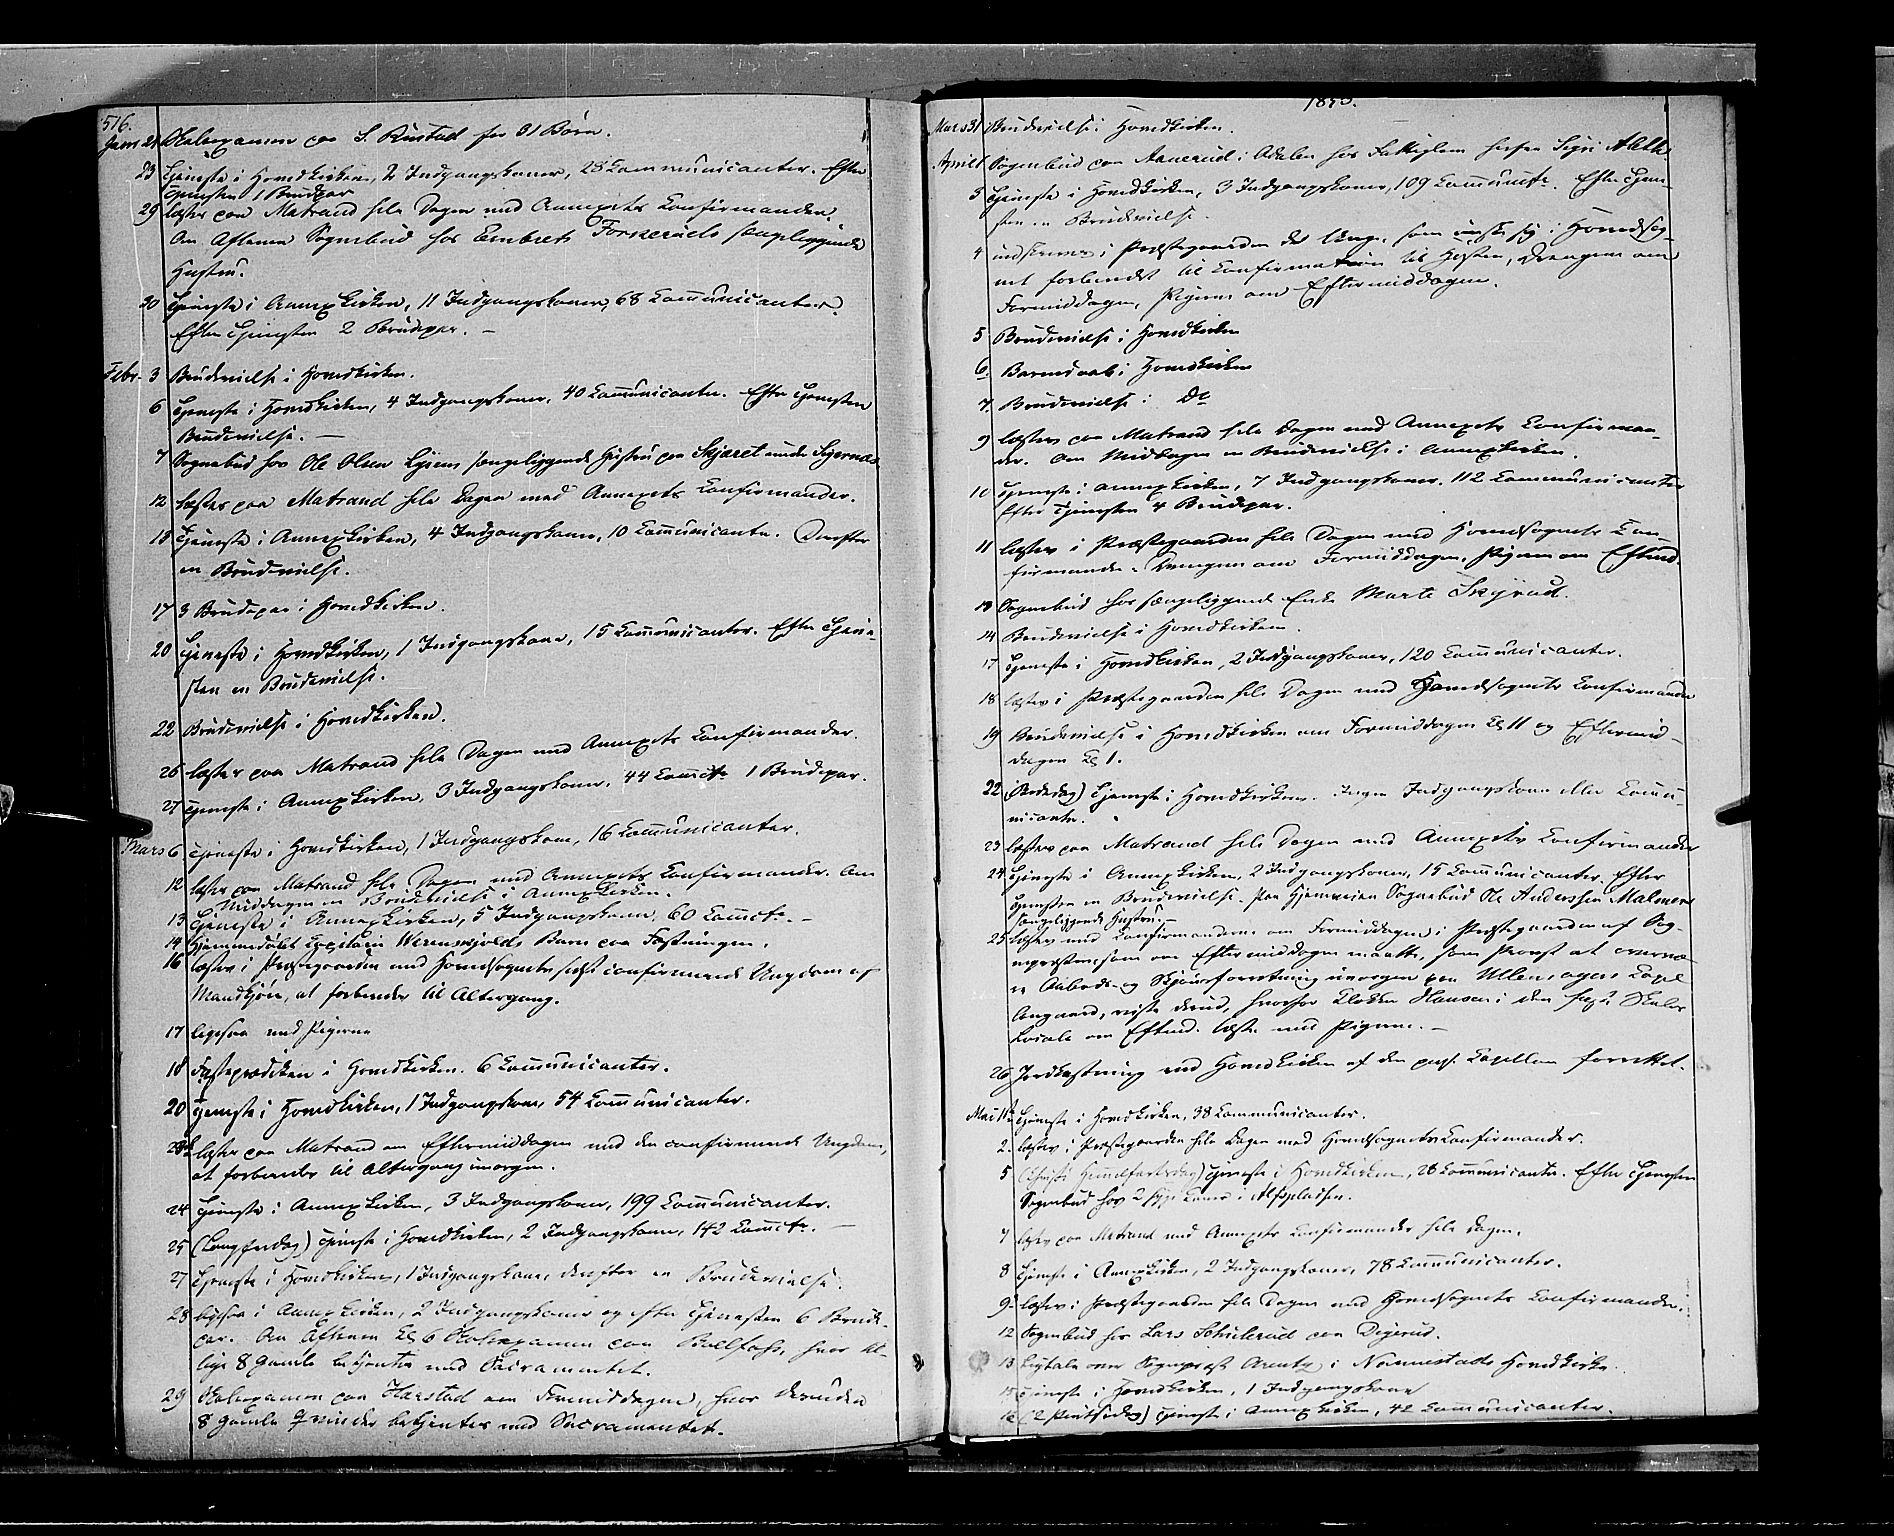 516.
Janr 21 Skoleexamen paa S. Rustad for 31 Børn.
23 Tjeneste i Hovedkirken, 2 Indgangskoner, 28 Communicanter. Efter
Tjenesten 1 Brudepar
29 læste paa Matrand hele Dagen med Annexets Confirmander.
Om Aftenen Sognebud hos Embret Forneruds sengeliggende
Hustru.
30 Tjeneste i Annexkirken, 11 Indgangskoner, 68 Communicanter.
Efter Tjenesten 2 Brudepar. –
Febr. 3 Brudevielse i Hovedkirken.
6 Tjeneste i Hovedkirken, 4 Indgangskoner, 40 Communicanter. Efter Tjenesten
Brudevielse. –
7 Sognebud hos Ole Olsen sengeliggende Hustru paa Skjæret under Sigernæs
12 læste paa Matrand hele Dagen med Annexets Confirmander.
13 Tjeneste i Annexkirken, 4 Indgangskoner, 10 Communicanter. Derefter
en Brudevielse.
17 3 Brudepar i Hovedkirken.
20 Tjeneste i Hovedkirken, 1 Indgangskone, 15 Communicanter. Efter Tjene-
sten en Brudevielse.
22 Brudevielse i Hovedkirken.
26 læste paa Matrand hele Dagen med Annexets Confirmander.
27 Tjeneste i Annexkirken, 3 Indgangskoner, 44 Commcte 1 Brudepar.
Mars 6 Tjeneste i Hovedkirken, 1 Indgangskone, 16 Communicanter.
12 læste paa Matrand hele Dagen med Annexets Confirmander. Om
Middagen en Brudevielse i Annexkirken.
13 Tjeneste i Annexkirken, 5 Indgangskoner, 60 Commcte. –
14 Hjemmedøbt Capitain Werenskjolds Barn paa Fæstningen.
16 læste i Præstegaarden med Hovedsognets sidst confirmerede Ungdom af
Mandkjøn, at forberede til Altergang.
17 ligesaa med Pigerne
18 Fasteprædiken i Hovedkirken. 6 Communicanter.
20 Tjeneste i Hovedkirken, 1 Indgangskone, 54 Communicanter.
23de læste paa Matrand om Eftermiddagen med den confirmerede Ungdom,
at forberede til Altergang imorgen.
24 Tjeneste i Annexkirken, 3 Indgangskoner, 199 Communicanter.
25 (Langfredag) Tjeneste i Hovedkirken, 2 Indgangskoner, 142 Commcte. –
27 Tjeneste i Hovedkirken, 1 Indgangskone, derefter en Brudevielse.
28 ligesaa i Annexkirken, 2 Indgangskoner og efter Tjenesten 6 Brude-
par. Om Aftenen Kl 6 Skoleexamen paa hvor til-
lige 8 Gamle betjentes med Sacramentet.
29 Skoleexamen paa Harstad om Formiddagen, hvor desuden
8 gamle Qvinder betjentes med Sacramentet.
1853.
Mars 31 Brudevielse i Hovedkirken.
April 1 Sognebud paa Aanerud i Adalen hos Fattiglem
3 Tjeneste i Hovedkirken, 3 Indgangskoner, 109 Communcte. Efter Tjene-
sten en Brudevielse.
4 indskrevet i Præstegaarden de Unge, som ønske sig i Hovedsog-
net forberedt til Confirmation til Høsten, Drengene om
Formiddagen, Pigerne om Eftermiddagen.
5 Brudevielse i Hovedkirken
6. Barnedaab i Hovedkirken
7. Brudevielse i Do
9 læste paa Matrand hele Dagen med Annexets Confirman-
der. Om Middagen en Brudevielse i Annexkirken.
10 Tjeneste i Annexkirken, 7 Indgangskoner, 112 Communicanter
Efter Tjenesten 4 Brudepar.
11 læste i Præstegaarden hele Dagen med Hovedsognets Con-
firmander. Drengene om Formiddagen, Pigerne om Eftermd.
13 Sognebud hos sengeliggende Enke Marte Skyrud.
14 Brudevielse i Hovedkirken.
17 Tjeneste i Hovedkirken, 2 Indgangskoner, 120 Communicanter.
18 læste i Præstegaarden hele Dagen med Hovedsognets Confirmander
19 Brudevielse i Hovedkirken om Formiddagen Kl 11 og Eftermid-
dagen Kl 1.
22 (Bededag) Tjeneste i Hovedkirken. Ingen Indgangskone eller Commu-
nicanter.
23 læste paa Matrand hele Dagen med Annexets Confirmander
24 Tjeneste i Annexkirken, 2 Indgangskoner, 15 Communicanter. Efter
Tjenesten en Brudevielse. Paa Hjemveien Sognebud Ole Anderssen Malmers
sengeliggende Hustru. –
25 læste med Confirmanderne om Formiddagen i Præstegaarden af Sog-
nepræsten, som om Eftermiddagen maatte, som Provst at overvæ-
re Aabods- og Skjønsforretning imorgen paa Ullensagers Capel
langaard, reiste derud, hvorfor Klokker Hansen i den faste Skoles
Locale om Efterm. læste med Pigerne. –
26 Jordkastning ved Hovedkirken af den pers. Capellan forrettet.
Mai 1ste Tjeneste i Hovedkirken, 38 Communicanter.
2. læste i Præstegaarden hele Dagen med Hovedsognets Confirmander.
5 (Christi Himmelfartsdag) Tjeneste i Hovedkirken, 28 Communicanter. Efter Tjenesten
Sognebud hos 2 syge i
7 læste paa Matrand med Annexets Confirmander hele Dagen.
8 Tjeneste i Annexkirken, 2 Indgangskoner, 78 Communicanter.
9. læste i Præstegaarden hele Dagen med Hovedsognets Confirmander.
12 Sognebud hos Lars Schulerud paa Digerud.
13 Ligtale over Sognepræst Arentz i Nannestads Hovedkirke.
15 Tjeneste i Hovedkirken, 1 Indgangskone
16 (2 Pintsedag) Tjeneste i Annexkirken, 42 Communicanter.